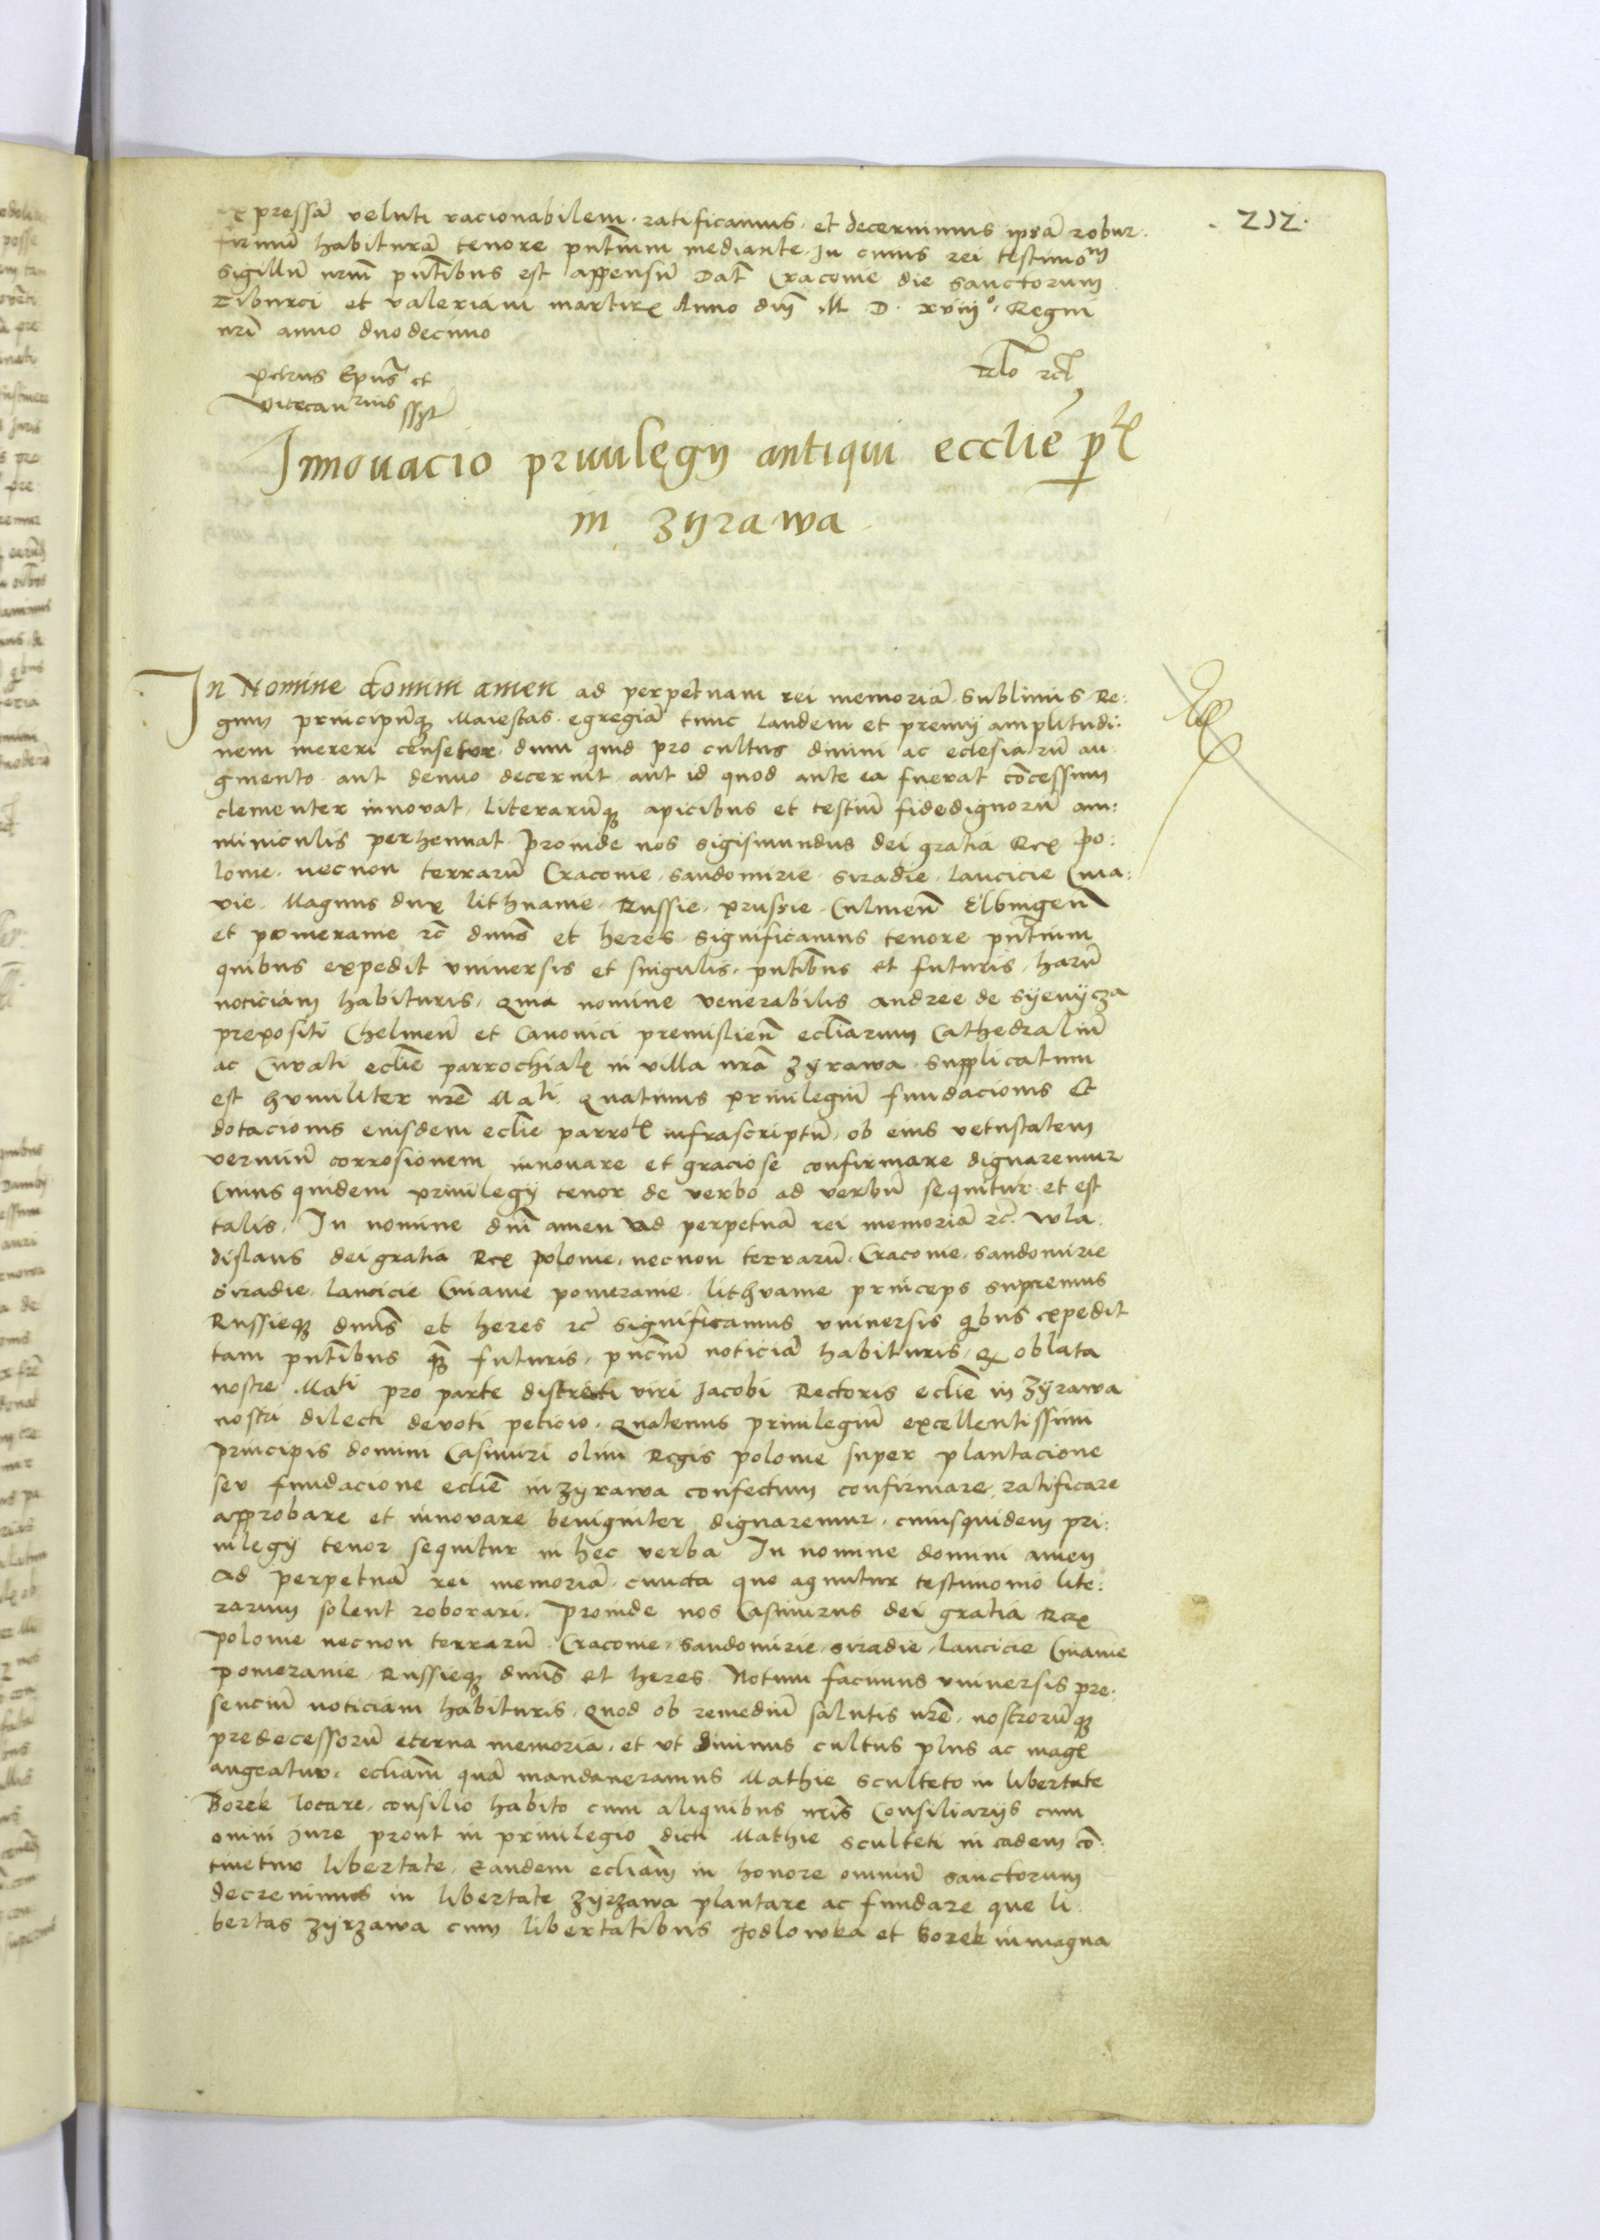 . 212 .
expressã veluti racionabilem. ratificamus. et decernimus ipsã robur.
firmũ habiturã tenore pñtium mediante. In cuius rei testimoᵐ
sigillũ nrm̃ pñtibus est appensũ Datˉ Cracouie die sanctorum
Tiburci et valeriani martirꝫ Anno dnĩ M D. xviijº. Regni
nrĩ anno duodecimo
Petrus Epũs et
vicecanʳⁱᵘˢ sspt
Rlo rcl
Innouacio priuilegij antiqui ecclĩe pˡꝫ
in Zijrawa
In Nomine domini amen ad perpetuam rei memoriã. Sublimis Re:
gum principũqꝫ Maiestas. egregiã tunc laudem et premij amplitudi:
nem mereri censetur. dum quid pro cultus diuini ac eclesiarũ au
gmento. aut denuo decernit aut id quod ante ea fuerat cõcessum
clementer innovat. literarũqꝫ apicibus et testiũ fidedignorũ am:
miniculis perhennat. Proinde nos Sigismundus dei gratia Rex Po:
lonie. necnon terrarũ Cracouie. Sandomirie. Siradie. Lancicie Cuia:
vie. Magnus dux lithuanie. Russie. prussie. Culmenˉ Elbingenˉ
et pomeranie rc̃ dnũs et heres. Significamus tenore pñtium
quibus expedit vniversis et singulis. pñtibus et futuris. harũ
noticiam habituris. Quia nomine venerabilis Andree de Syenycza
prepositi Chelmenˉ et Canonici premislienˉ eclĩarum Cathedraliũ
ac Curati eclĩe parrochialꝫ in villa nrã Zyrawa. supplicatum
est humiliter nrẽ Maᵗⁱ. quatinus priuilegiũ fundacionis Et
dotacionis eiusdem eclĩe parroˡꝫ infrascriptũ. ob eius vetustatem
vermiũ corrosionem innouare et graciose confirmare dignaremur
Cuius quidem priuilegij tenor de verbo ad verbũ sequitur et est
talis. In nomine dnĩ amen Ad perpetuã rei memoriã rc̃. Wla
dislaus dei gratia Rex Polonie. necnon terrarũ. Cracouie. Sandomirie
Siradie. Lancicie Cuiauie pomeranie. lithuanie princeps supremus
Russieqꝫ dnũs et heres rc̃ significamus vniversis qˡbus expedit
tam pñtibus qꝫ̃ futuris. pñciũ noticiã habituris. Qꝫ oblata
nostre Maᵗⁱ pro parte discreti viri Jacobi Rectoris eclĩe in Zyrawa
nostri dilecti devoti peticio. Quatenus priuilegiũ excellentissimi
principis domini Casimiri olim Regis polonie super plantacione
seu fundacione eclĩe in Zyrawa confectum confirmare. ratificare
approbare et innovare benigniter dignaremur. cuiusquidem pri:
uilegij tenor sequitur in hec verba In nomine domini amen
Ad perpetuã rei memoriã. cuncta que agnntur testimonio lite:
rarum solent roborari. Proinde nos Casimirus dei gratia Rex
Polonie necnon terrarũ. Cracouie. Sandomirie. Siradie. Lancicie Cuiauie
pomeranie. Russieqꝫ dnũs et heres. Notum facimus vniversis pre:
senciũ noticiam habituris. Quod ob remediũ salutis nrẽ. nostrorũqꝫ
predecessorũ eterna memoria. et vt diuinus cultus plus ac magꝫ
augeatur. eclĩam quã mandaueramus Mathie sculteto in libertate
Borek locare. consilio habito cum aliquibus nrĩs Consiliarijs cum
omni Jure prout in priuilegio dicti Mathie sculteti in eadem cõ
tinetur libertate. Eandem eclĩam in honore omniũ sanctorum
decreuimus in libertate Zyrzawa plantare ac fundare que li
bertas Zyrzawa cum libertatibus Jodlowka et Borek in magna